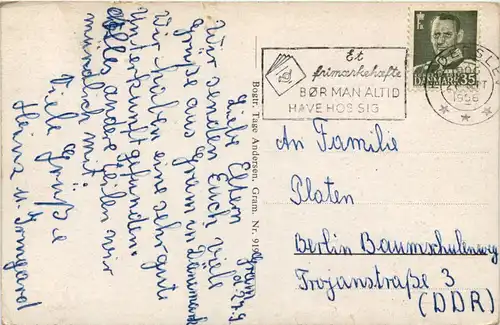 Gram
d. 27.9
Liebe Eltern
Wir senden Euch viele
Grüße aus Gram in Dänemark
Wir haben eine sehr gute
Unterkunft gefunden.
Alles andere teilen wir
mündlich mit.
Viele Grüße
Heinz u. Irmgard
Bogtr. Tage Andersen, Gram. Nr.
Et
frimærkehæfte
BØR MAN ALTID
HAVE HOS SIG
DANMARK 35
1956
An Familie
Platen
Berlin Baumschulenweg
Trojanstraße 3
(DDR)